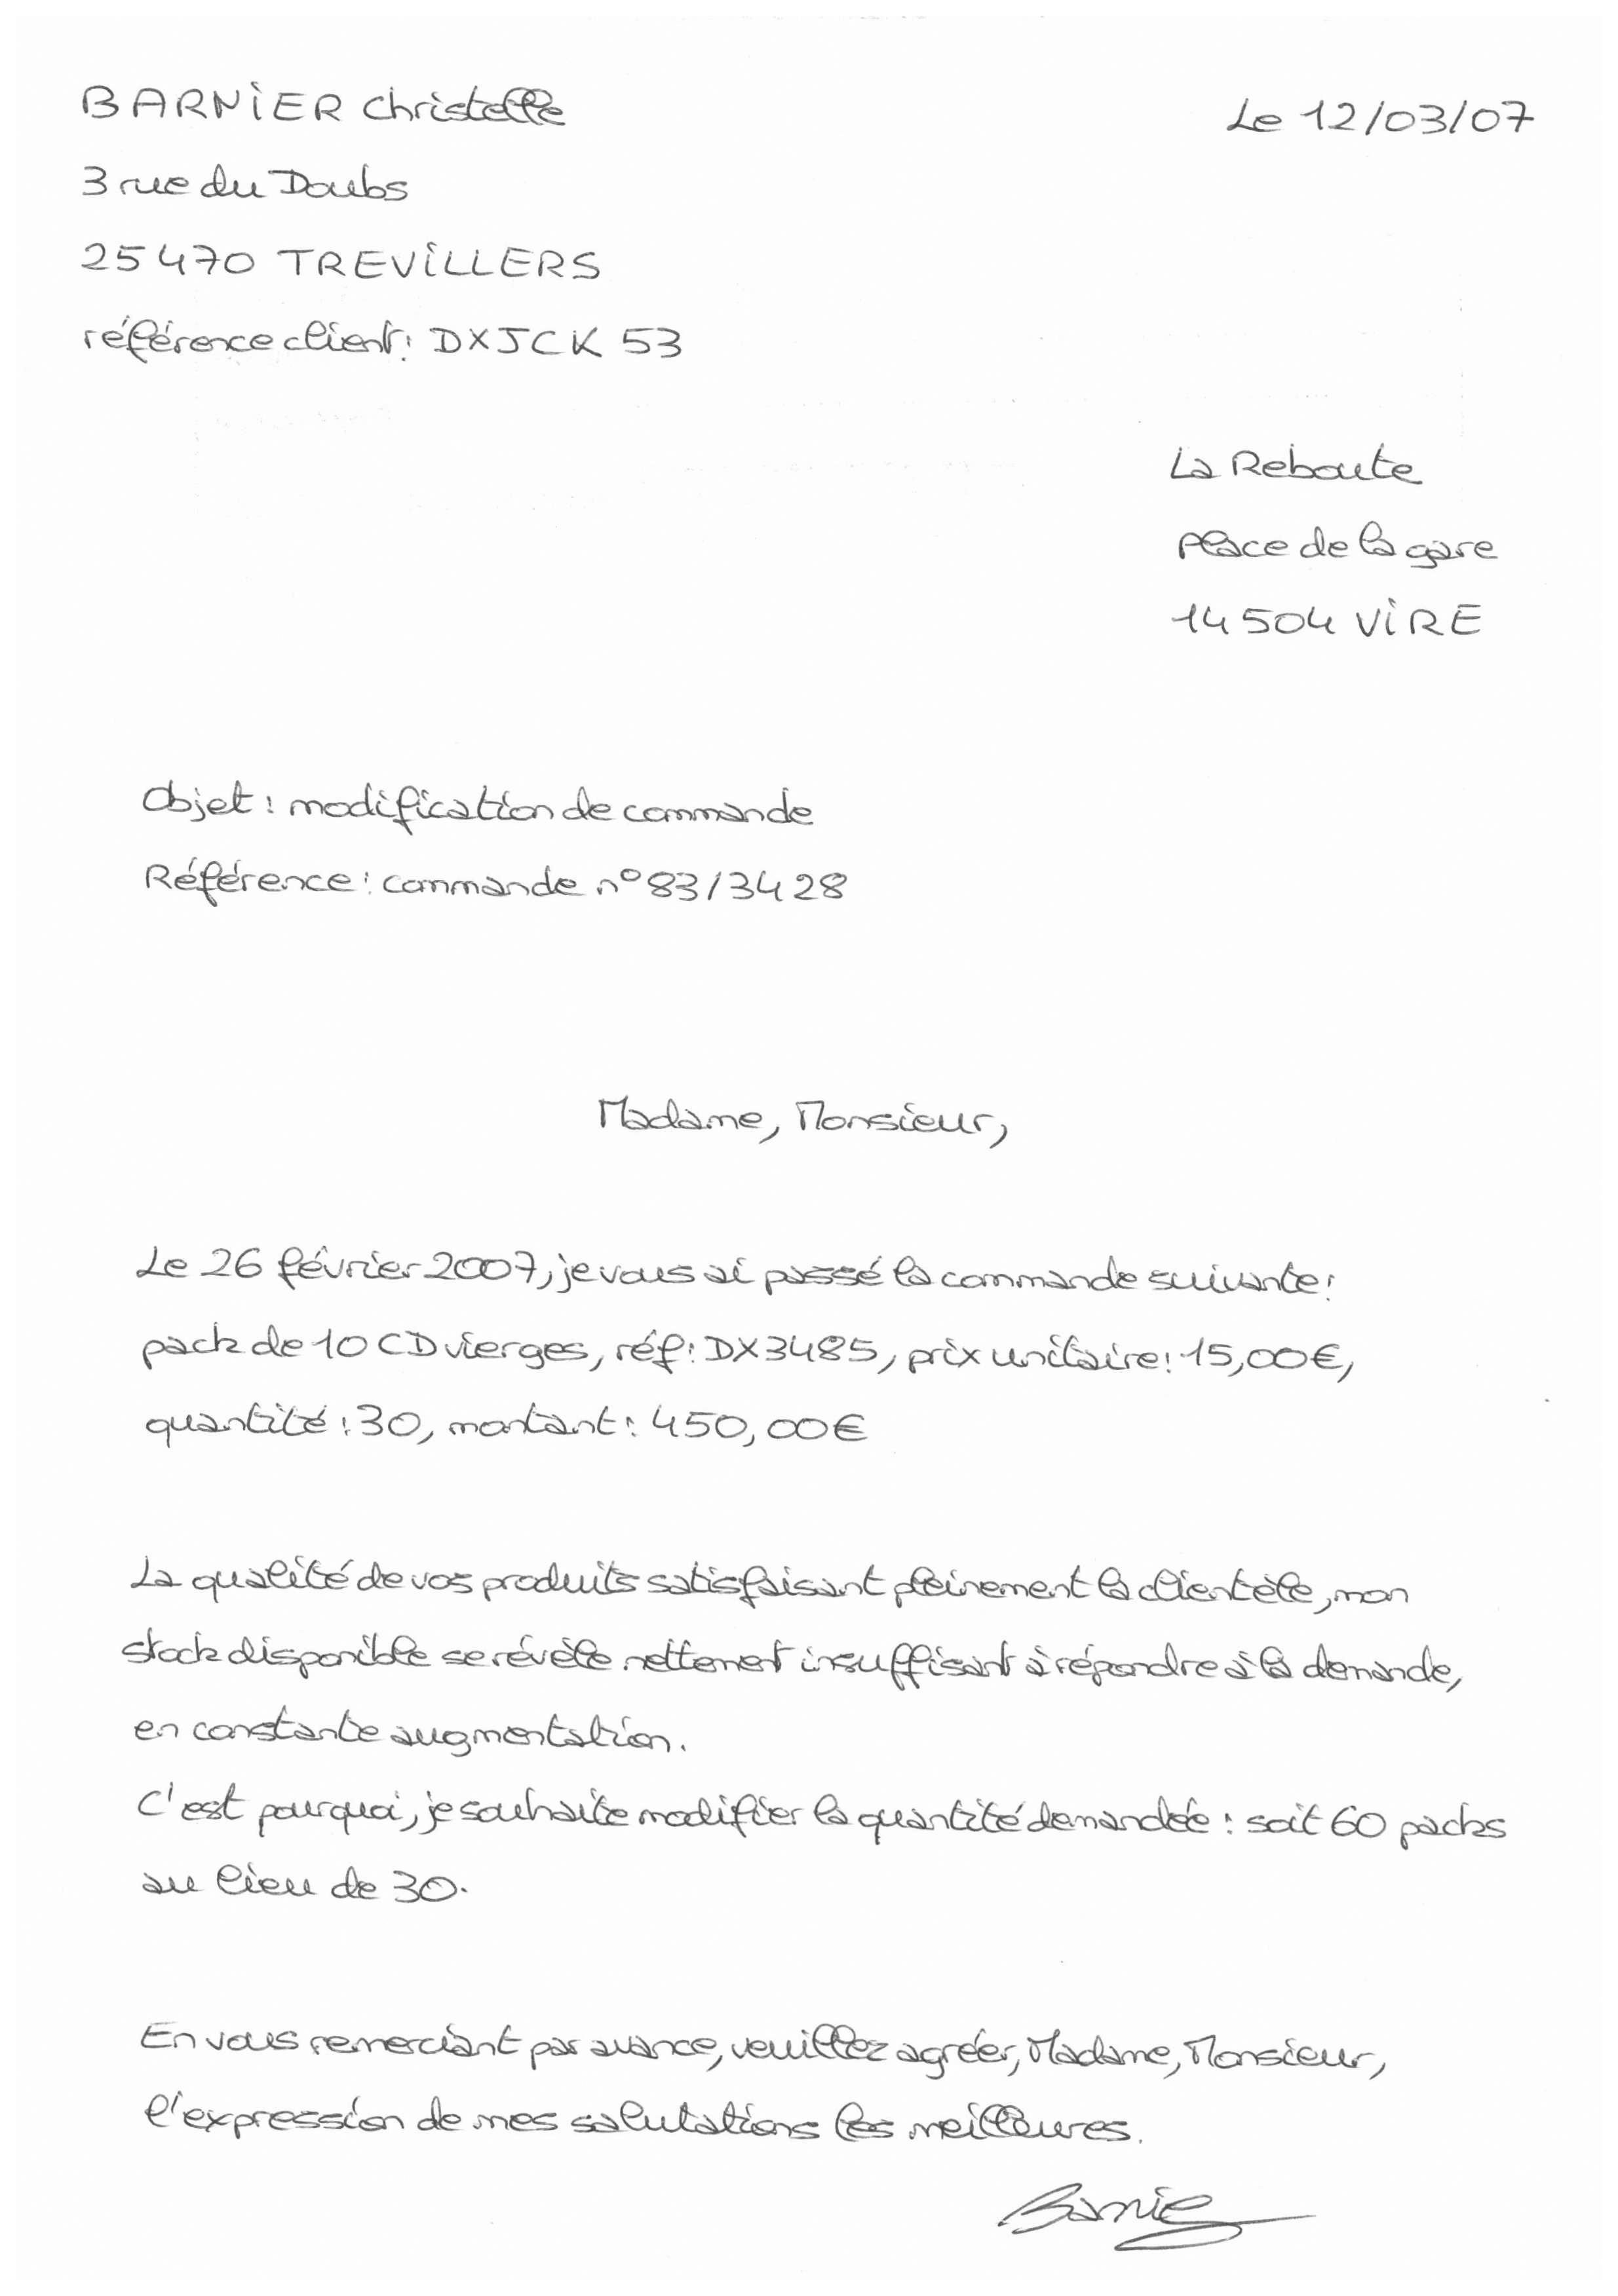 BARNIER Christelle
Le 12/03/07
3 rue du Doubs
25470 TREVILLERS
référence client : DXJCK 53
La Reboute
Place de la gare
14504 VIRE
Objet : modification de commande
Référence : commande n°83/3428
Madame, Monsieur,
Le 26 février 2007, je vous ai passé la commande suivante :
pack de 10 CD vierges, réf : DX3485, prix unitaire : 15,00€,
quantité : 30, montant : 450,00€
La qualité de vos produits satisfaisant pleinement la clientèle, mon
stock disponible se révèle nettement insuffisant à répondre à la demande,
en constante augmentation.
C'est pourquoi, je souhaite modifier la quantité demandée : soit 60 packs
au lieu de 30.
En vous remerciant par avance, veuillez agréer, Madame, Monsieur,
l'expression de mes salutations les meilleures.
Barnier